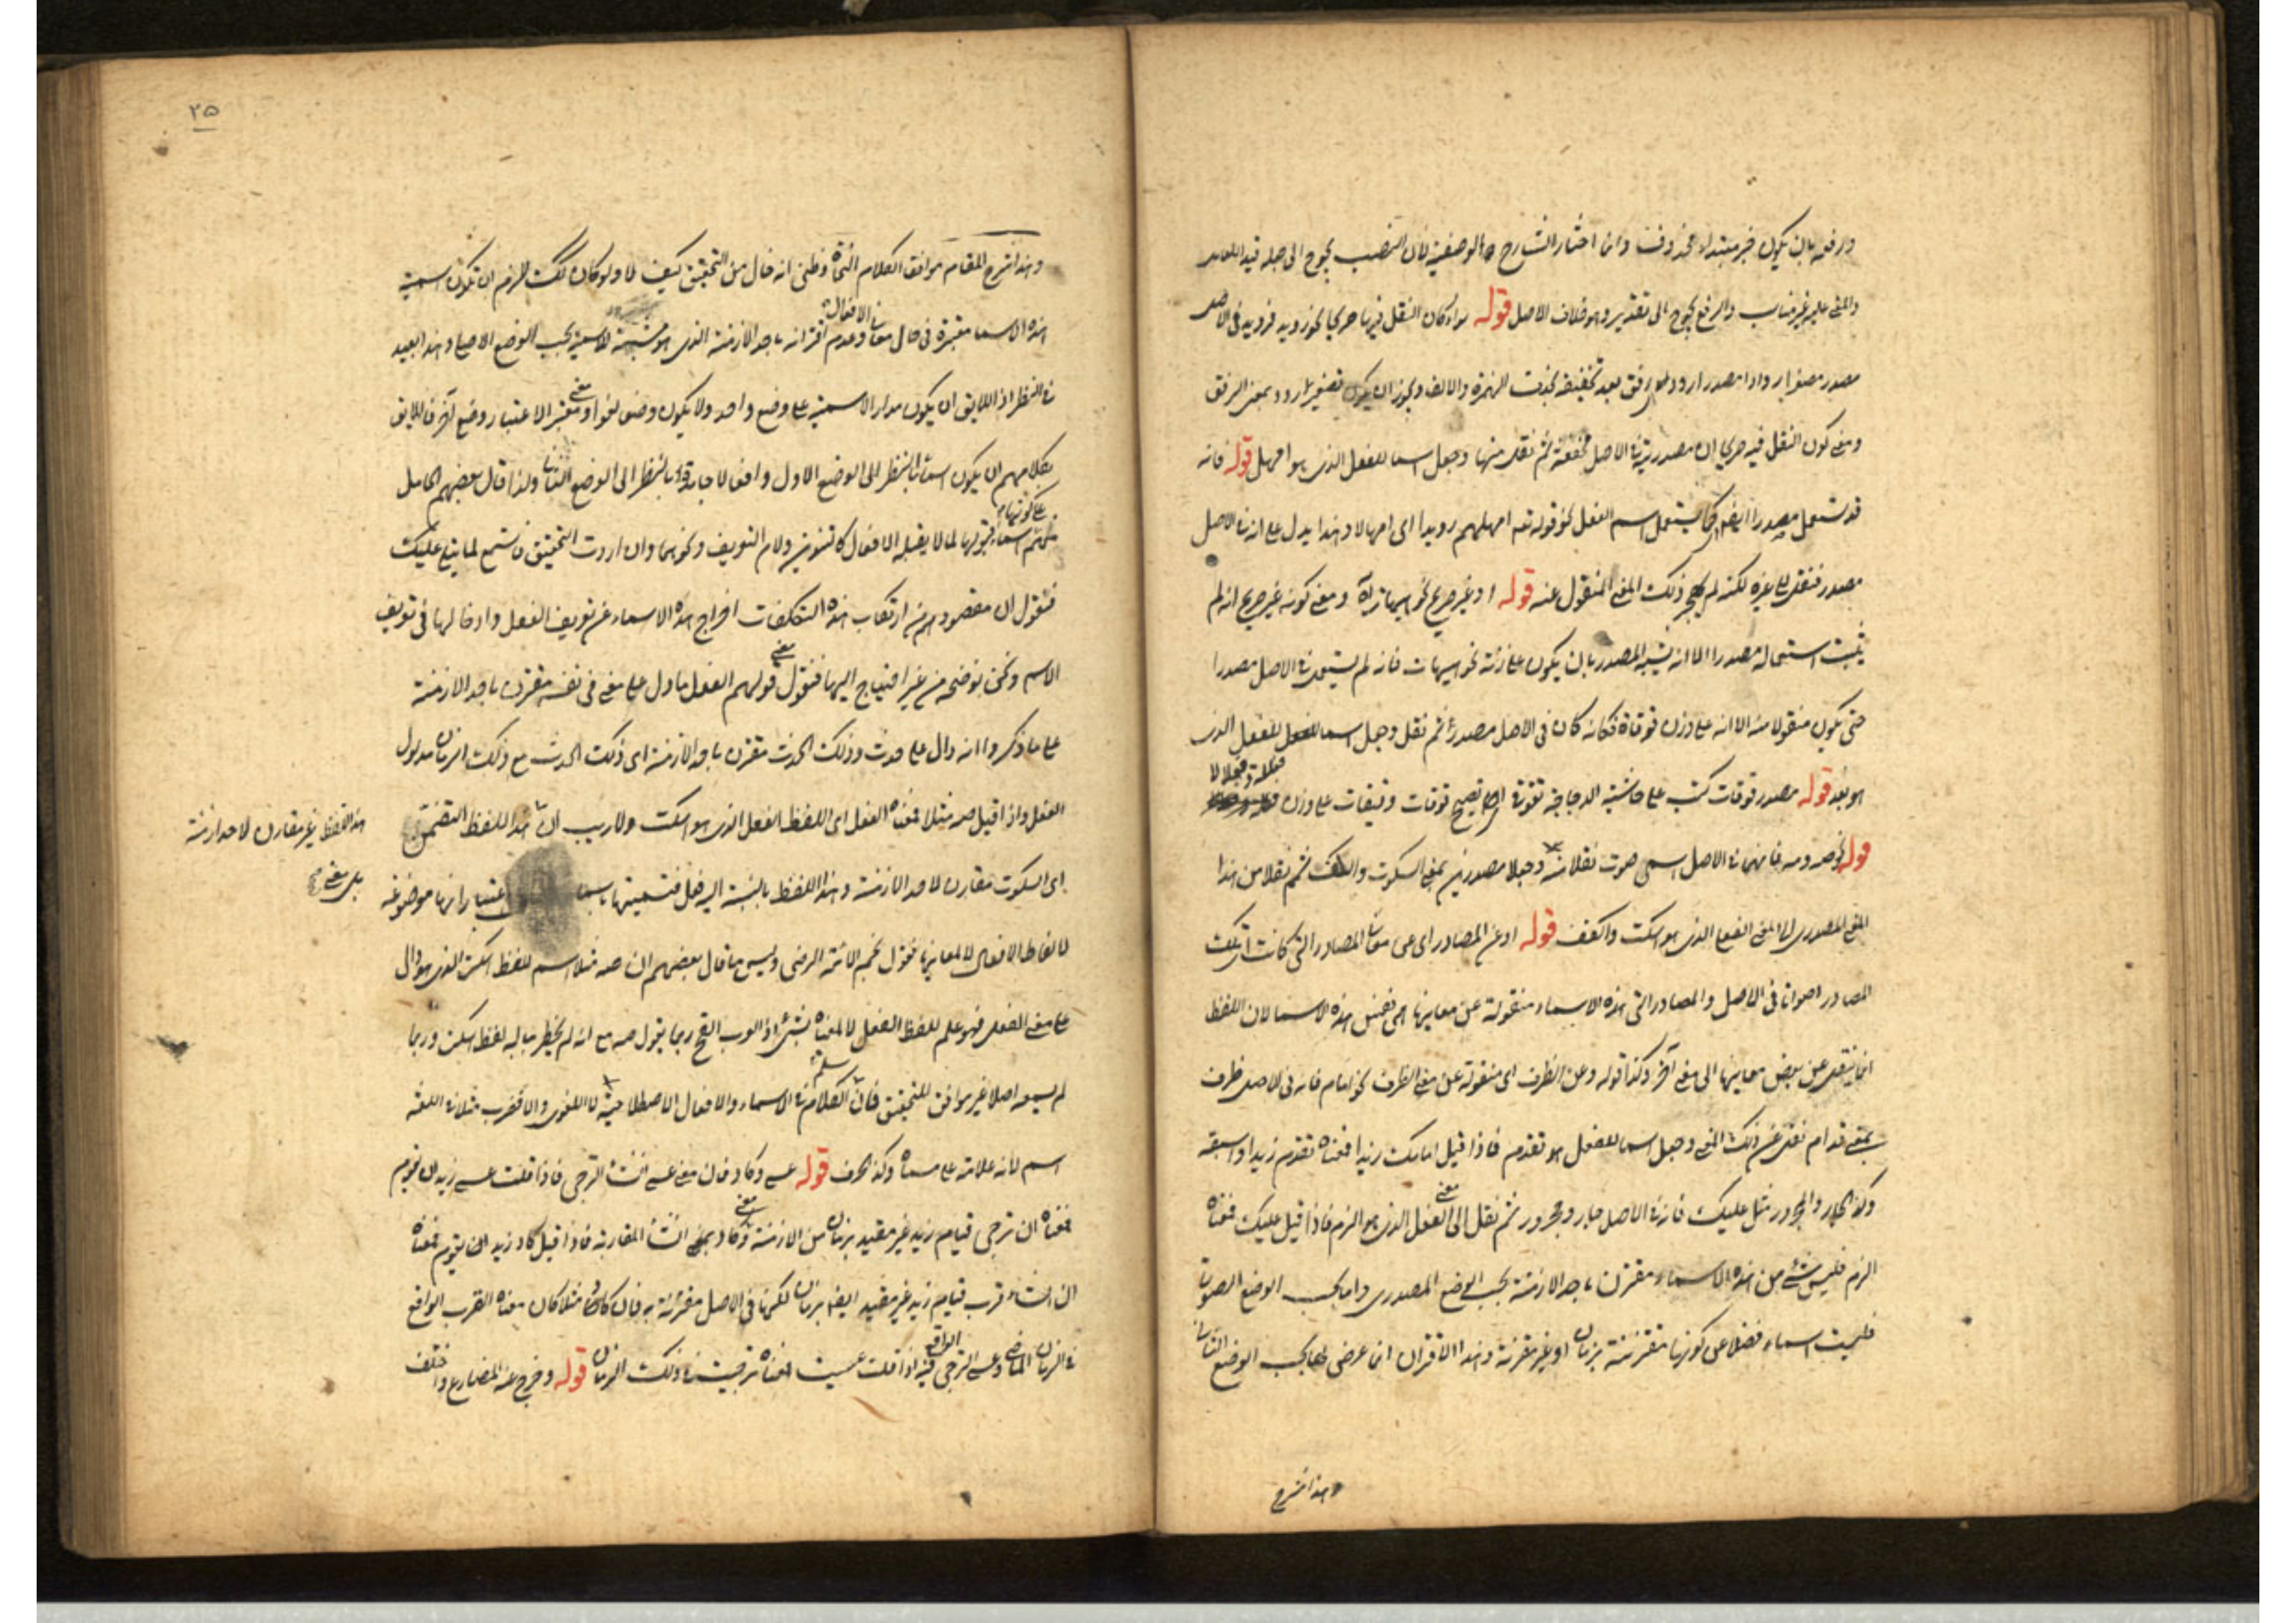 ورفعه بان يكون خبر مبتداء محذوف وانما اختار الشارح الوصفية لان النصب يحوج الى جعله قيد اللعامل
والمعنى عليه غير مناسب والرفع يحوج الى تقدير وهو خلاف الاصل قوله سواء كان النقل فيها صريحا نحو رويد فرويد في الاصل
مصدر مصغر ارواد مصدر ارود اى رفق بعد تخفيفه بحذف الهمزة والالف ويجوز ان يكون تصغير ارود بمعنى الرفق
ومعنى كون النقل فيه صريحا ان مصدريته في الاصل محققة ثم نقل منها وجعل اسما للفعل الذى هو امهل قوله فانه
قد يستعمل مصدرا ايضا كما يستعمل اسم الفعل نحو قوله تعه امهلهم رويدا اى امهالا وهذا يدل على انه في الاصل
مصدر فنقل الى غيره لكنه لم يهجر ذلك المعنى المنقول عنه قوله او غير صريح نحو هيهات ومعنى كونه غير صريح انه لم
يثبت استعماله مصدرا الا انه يشبه المصدر بان يكون على زنته نحو هيهات فانه لم يستعمل في الاصل مصدرا
حتى يكون منقولا منه الا انه على وزن قوقاة فكانه كان في الاصل مصدرا ثم نقل وجعل اسما للفعل الذى
هو بعد قوله مصدر قوقات كتب على حاشية الدجاجة تقوقى اى تصيح قوقات وقيقات على وزن فعللة وفعلالا
قوله نحو صه ومه فانهما في الاصل اسمى صوت نقلا منه وجعلا مصدرين بمعنى السكوت والكف ثم نقلا من هذا
المعنى المصدرى الى المعنى الفعلى الذى هو اسكت واكفف قوله او عن المصادر اى عن معانى المصادر التى كانت تلك
المصادر اصواتا في الاصل والمصادر التى هذه الاسماء منقولة عن معانيها هى نفس هذه الاسما لان اللفظ
انما ينقل عن بعض معانيها الى معنى آخر وكذا قوله وعن الظرف اى منقولة عن معنى الظرف نحو امام فانه في الاصل ظرف
بمعنى قدام نقل عن ذلك المعنى وجعل اسما للفعل هو تقدم فاذا قيل امامك زيدا فمعناه تقدم زيدا واسبقه
وكذا الجار والمجرور مثل عليك فانه في الاصل جار ومجرور ثم نقل الى معنى الفعل الذى هو الزم فاذا قيل عليك فمعناه
الزم فليس شئ من هذه الاسماء مقترن باحد الازمنة بحسب الوضع المصدرى واما بحسب الوضع الصوتى
فليست اسماء فضلا عن كونها مقترنة بزمان او غير مقترنة وهذا الاقتران انما عرض لها بحسب الوضع الثانى
وهذا شرح
٢٥
وهذا شرح المقام موافق الكلام النحاة وظنى انه خال من التحقيق كيف لا ولو كان كذلك للزم ان تكون اسمية
هذه الاسما معتبرة في حال معانى الافعال وعدم اقترانه باحد الازمنة الذى هو للاسمية بحسب الوضع الاصلى وهذا بعيد
في النظر اذ اللايق ان يكون مدار الاسمية على وضع واحد ولا يكون وضع لغو او معتبر الاعتبار وضع آخر فاللايق
بكلامهم ان يكون اسماء بالنظر الى الوضع الاول وافعالا جامدة بالنظر الى الوضع الثانى ولذا قال بعضهم الحامل
على كونها اسماء قبولها لما لا يقبله الافعال كالتنوين ولام التعريف ونحوهما وان اردت التحقيق فاستمع لما يتلى عليك
فنقول ان مقصودهم من ارتكاب هذه التكلفات اخراج هذه الاسماء عن تعريف الفعل وادخالها في تعريف
الاسم ونحن نوضحه من غير احتياج اليها فنقول معنى قولهم الفعل ما دل على معنى في نفسه مقترن باحد الازمنة
على ما ذكروا انه دال على حدث وذلك الحدث مقترن باحد الازمنة اى ذلك الحدث مع ذلك الزمان مدلول
الفعل واذا قيل صه مثلا فمعناه الفعل اى اللفظ الفعل الذى هو اسكت ولا ريب ان هذا اللفظ
هذا اللفظ غير مقارن لاحد ازمنة
بل معنى
اى السكوت مقارن لاحد الازمنة وهذا اللفظ بالنسبة اليه فعل فتسميتها باسما باعتبار انها موضوعة
لالفاظ الافعال لا لمعانيها فقول نجم الائمة الرضى وليس ما قال بعضهم ان صه مثلا اسم للفظ اسكت الذى هو دال
على معنى الفعل فهو علم للفظ الفعل لا لمعناه بشئ اذ العرب القح ربما يقول صه مع انه لم يخطر بباله لفظ اسكت وربما
لم يسمعه اصلا غير موافق للتحقيق فان الكلام في الاسماء والافعال الاصطلاحية لا اللغوى والا فضرب مثلا في اللغة
اسم لانه علامة على مسماه وكذا الحرف قوله عسى وكاد فان معنى عسى انشاء الترجى فاذا قلت عسى زيد ان يقوم
فمعناه ان ترجى قيام زيد غير مقيد بزمان من الازمنة وكاد بمعنى انشاء المقاربة فاذا قيل كاد زيد ان يقوم فمعناه
ان انشاء قرب قيام زيد غير مقيد ايضا بزمان لكنها في الاصل مقترنة به فان كاد مثلا كان معناه القرب الواقع
في الزمان الماضى وعسى الترجى الواقع فيه اذا قلت عسيت فمعناه ترجيت في ذلك الزمان قوله وخرج عنه المضارع واختلف